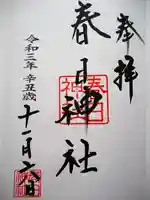 奉拝
春日神社
令和三年 辛丑歳
十一月六日